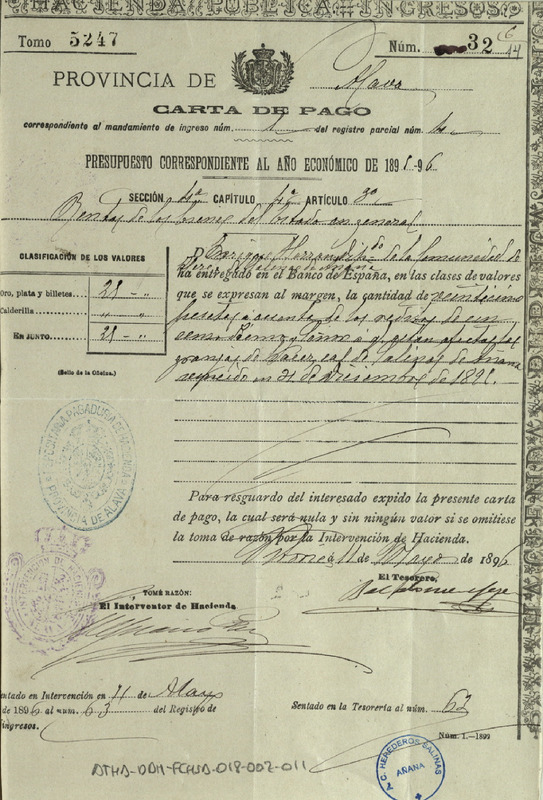 HACIENDA PÚBLICA=INGRESOS
Tomo 5247
Núm. 32
44
PROVINCIA DE Alava
CARTA DE PAGO
correspondiente al mandamiento de ingreso núm. 1 del registro parcial núm.
PRESUPUESTO CORRESPONDIENTE AL AÑO ECONÓMICO DE 1895-96
SECCIÓN 4ª CAPÍTULO 4º ARTÍCULO 3º
Rentas de los bienes del Estado en general
CLASIFICACIÓN DE LOS VALORES
Oro, plata y billetes.. 25 - "
Calderilla " "
EN JUNTO 25 - "
(Sello de la Oficina.)
D. Enrique Hernandez de la Comunidad de
ha entregado en el Banco de España, en las clases de valores
que se expresan al margen, la cantidad de veinticinco
pesetas á cuenta de los réditos de un
censo
granjas de Salinas de Anana
vencido en 31 de Diciembre de 189
Para resguardo del interesado expido la presente carta
de pago, la cual será nula y sin ningún valor si se omitiese
la toma de razón por la Intervención de Hacienda.
Vitoria á 11 de Mayo de 1896
El Tesorero,
TOMÉ RAZÓN:
El Interventor de Hacienda
DEPOSITARIA PAGADURIA DE HACIENDA
PROVINCIA DE ALAVA
INTERVENCION DE HACIENDA
Sentado en Intervención en 11 de Mayo
de 1896 al núm. 63 del Registro de
ingresos.
Sentado en la Tesorería al núm. 62
Núm. 1.—1892
ATHA-DAH-FCHSA-018-002-011
A.C. HEREDEROS SALINAS
AÑANA